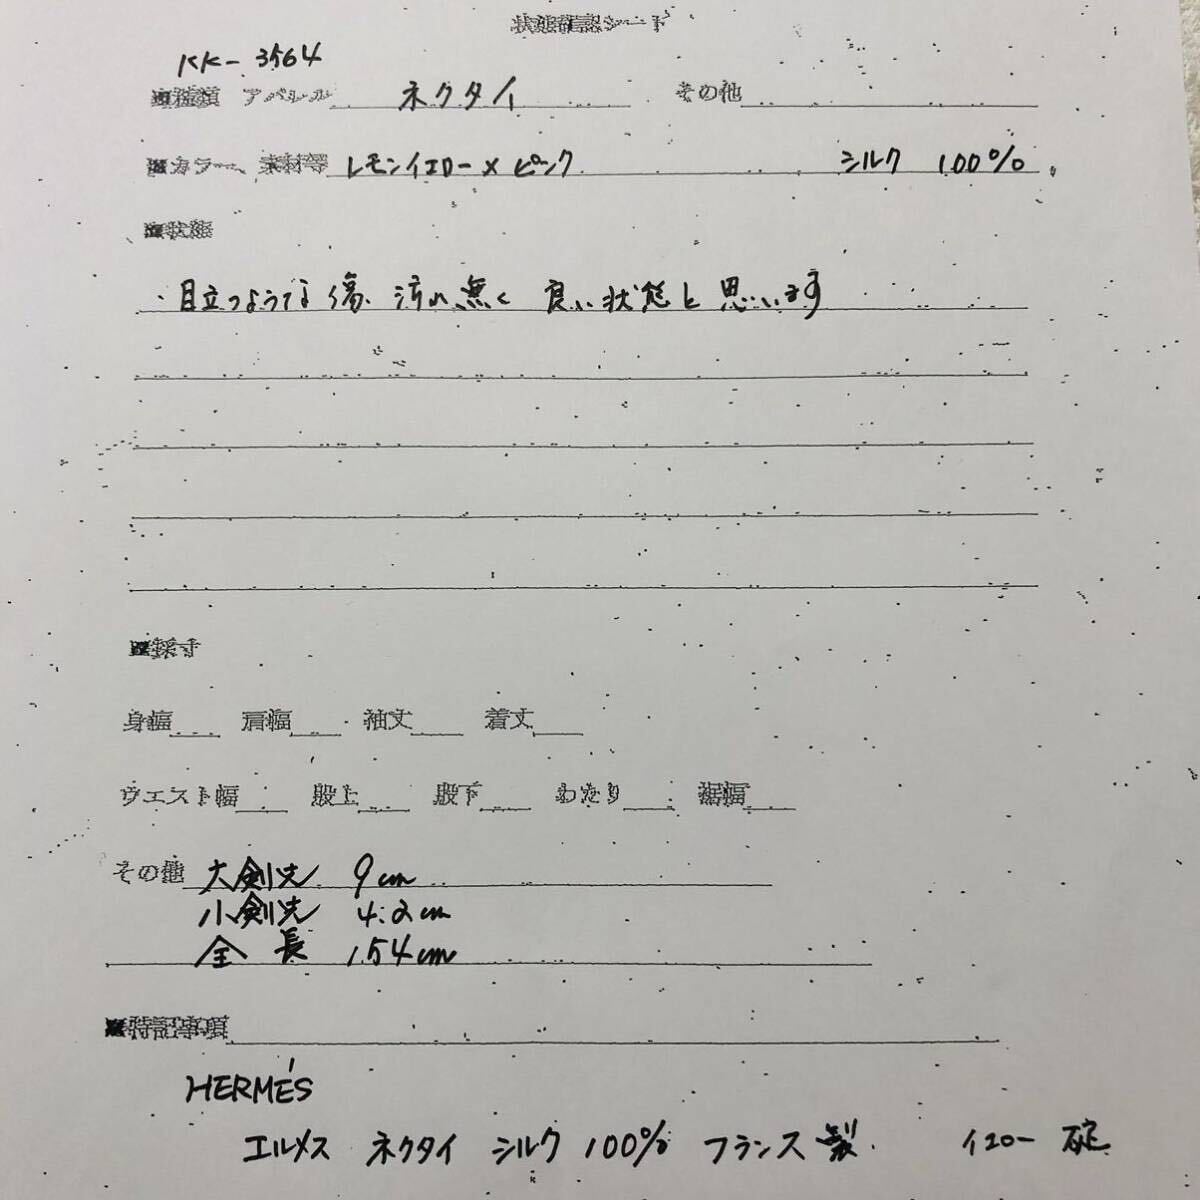 状態確認シート
KK-3564
■種類 アパレル ネクタイ その他
■カラー、素材等 レモンイエロー×ピンク シルク 100%
■状態
・目立つような傷、汚れ無く 良い状態と思います
■採寸
身幅 肩幅 袖丈 着丈
ウエスト幅 股上 股下 わたり 裾幅
その他 大剣先 9cm
小剣先 4.2cm
全長 154cm
■特記事項
HERMÉS
エルメス ネクタイ シルク 100% フランス製 イエロー 碇